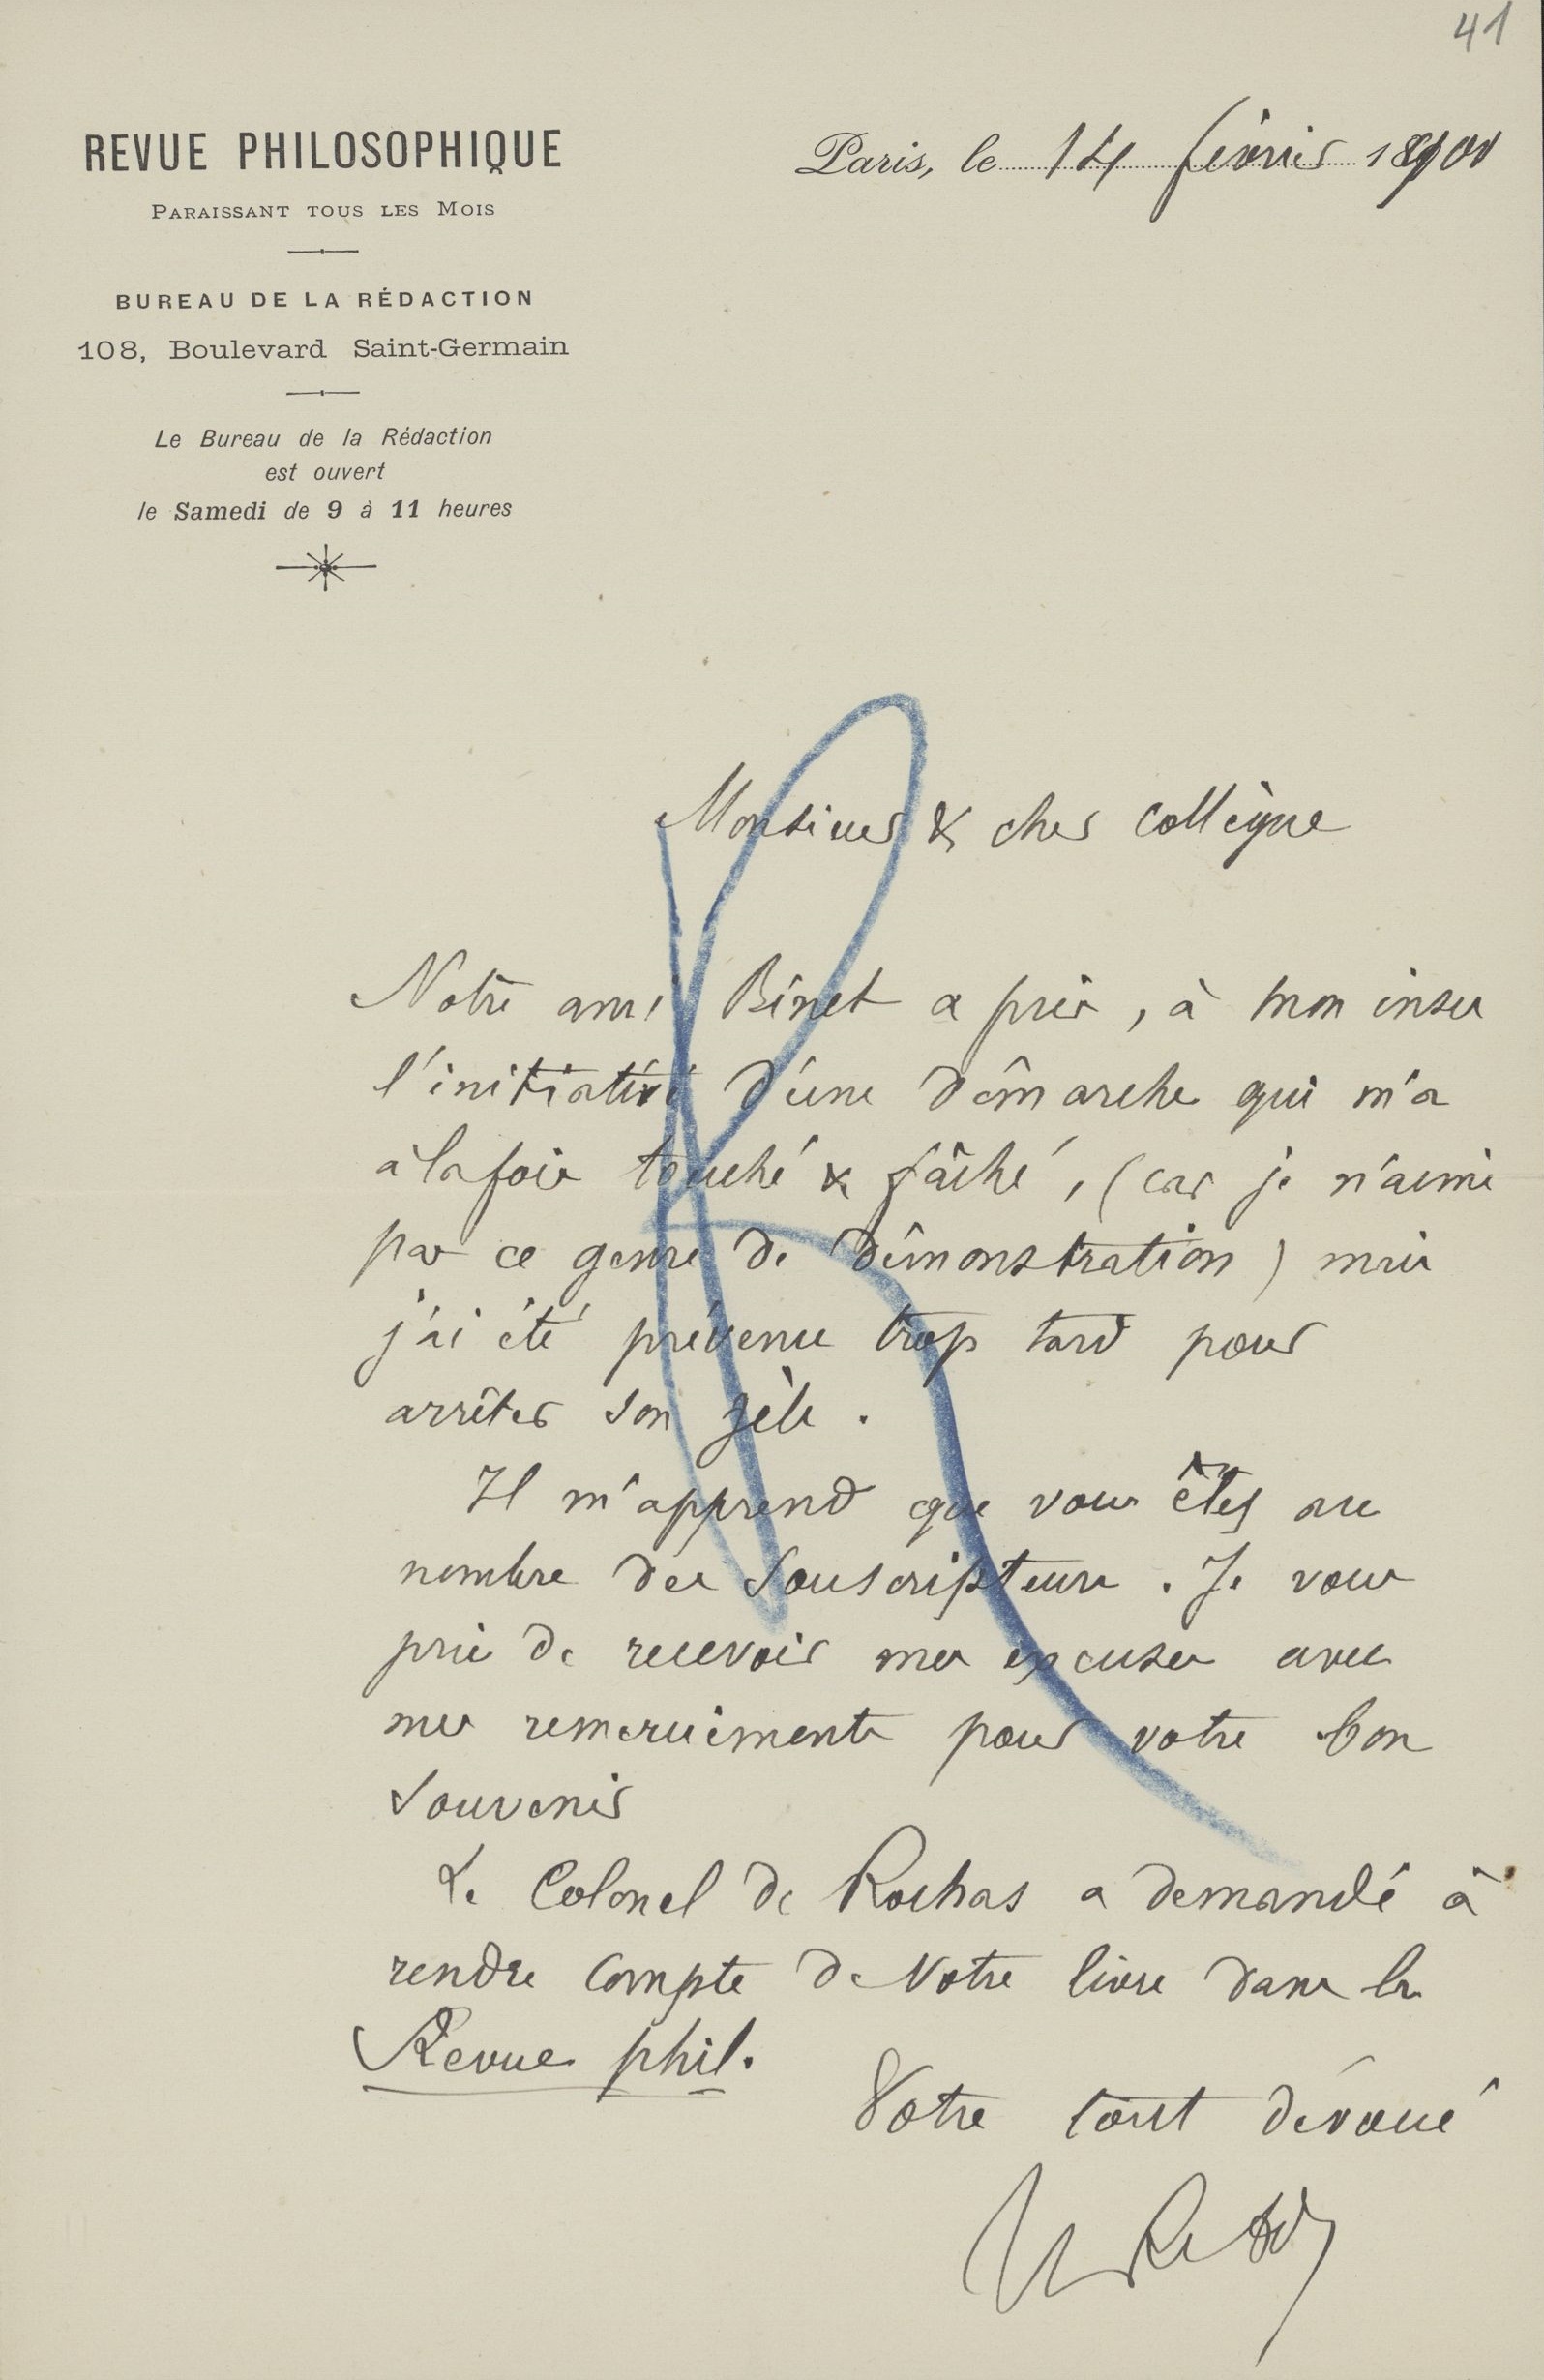 41
REVUE PHILOSOPHIQUE
PARAISSANT TOUS LES MOIS
BUREAU DE LA RÉDACTION
108, Boulevard Saint-Germain
Le Bureau de la Rédaction
est ouvert
le Samedi de 9 à 11 heures
Paris, le 14 février 1900
Monsieur & cher collègue
Notre ami Binet a pris, à mon insu
l'initiative d'une démarche qui m'a
à la fois touché & fâché, (car je n'aime
pas ce genre de démonstration) mais
j'ai été prévenu trop tard pour
arrêter son zèle.
Il m'apprend que vous êtes au
nombre des souscripteurs. Je vous
prie de recevoir mes excuses avec
mes remerciements pour votre bon
souvenir
Le Colonel de Rochas a demandé à
rendre compte de Votre livre dans la
Revue phil.
Votre tout dévoué